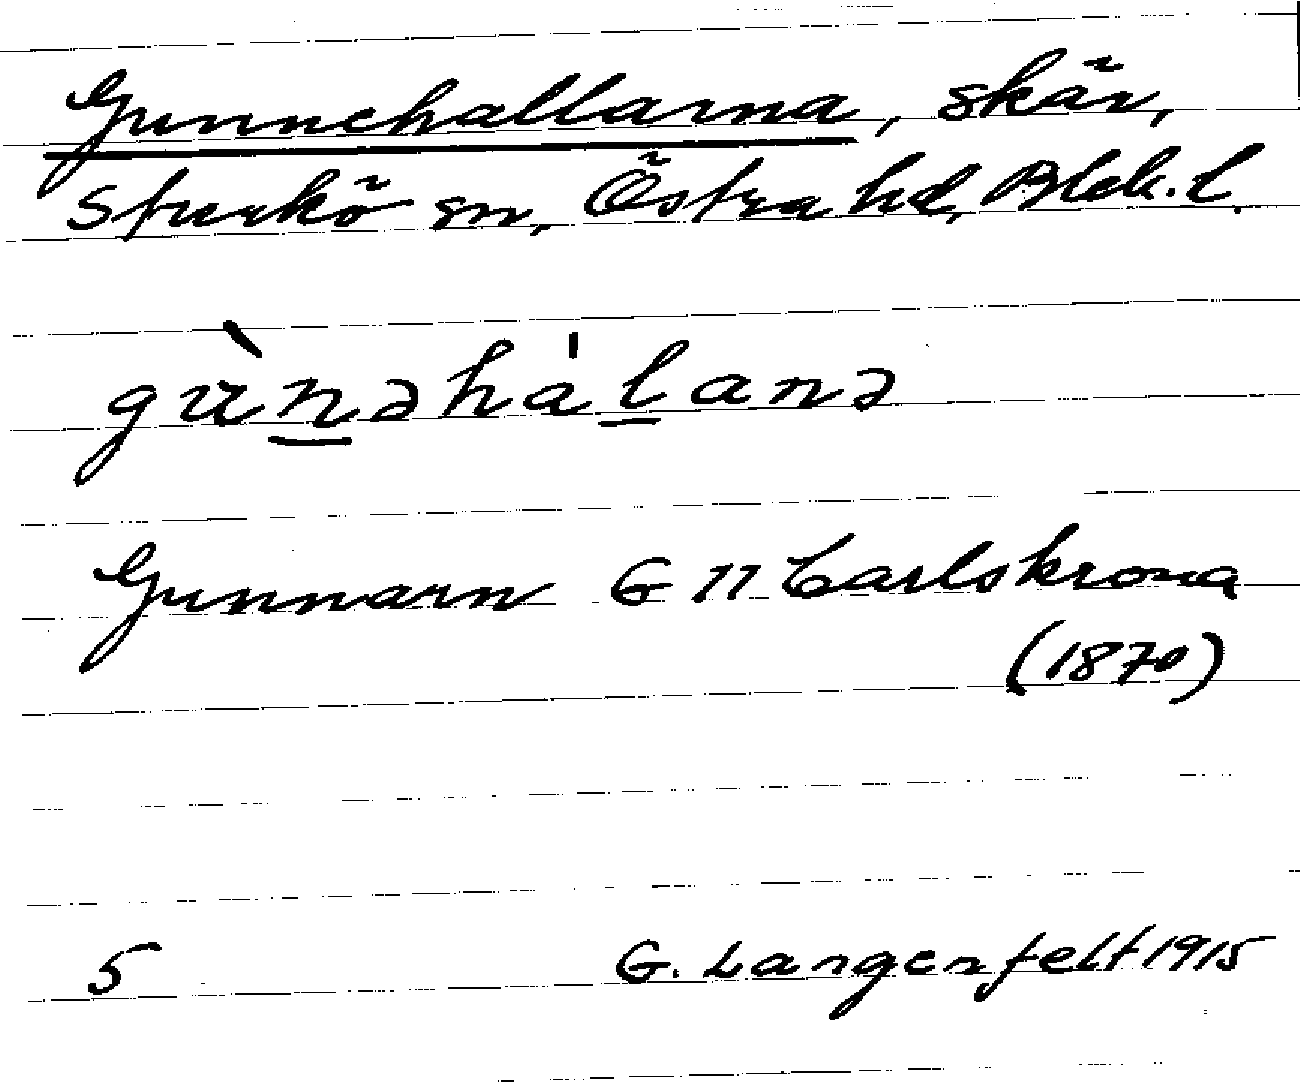 Gunnehallarna, skär,
Sturkö sn, Östra hd, Blek. l.
gùnəhálanə
Gunnarn G 11 Carlskrona
(1870)
5 G. Langenfelt 1915